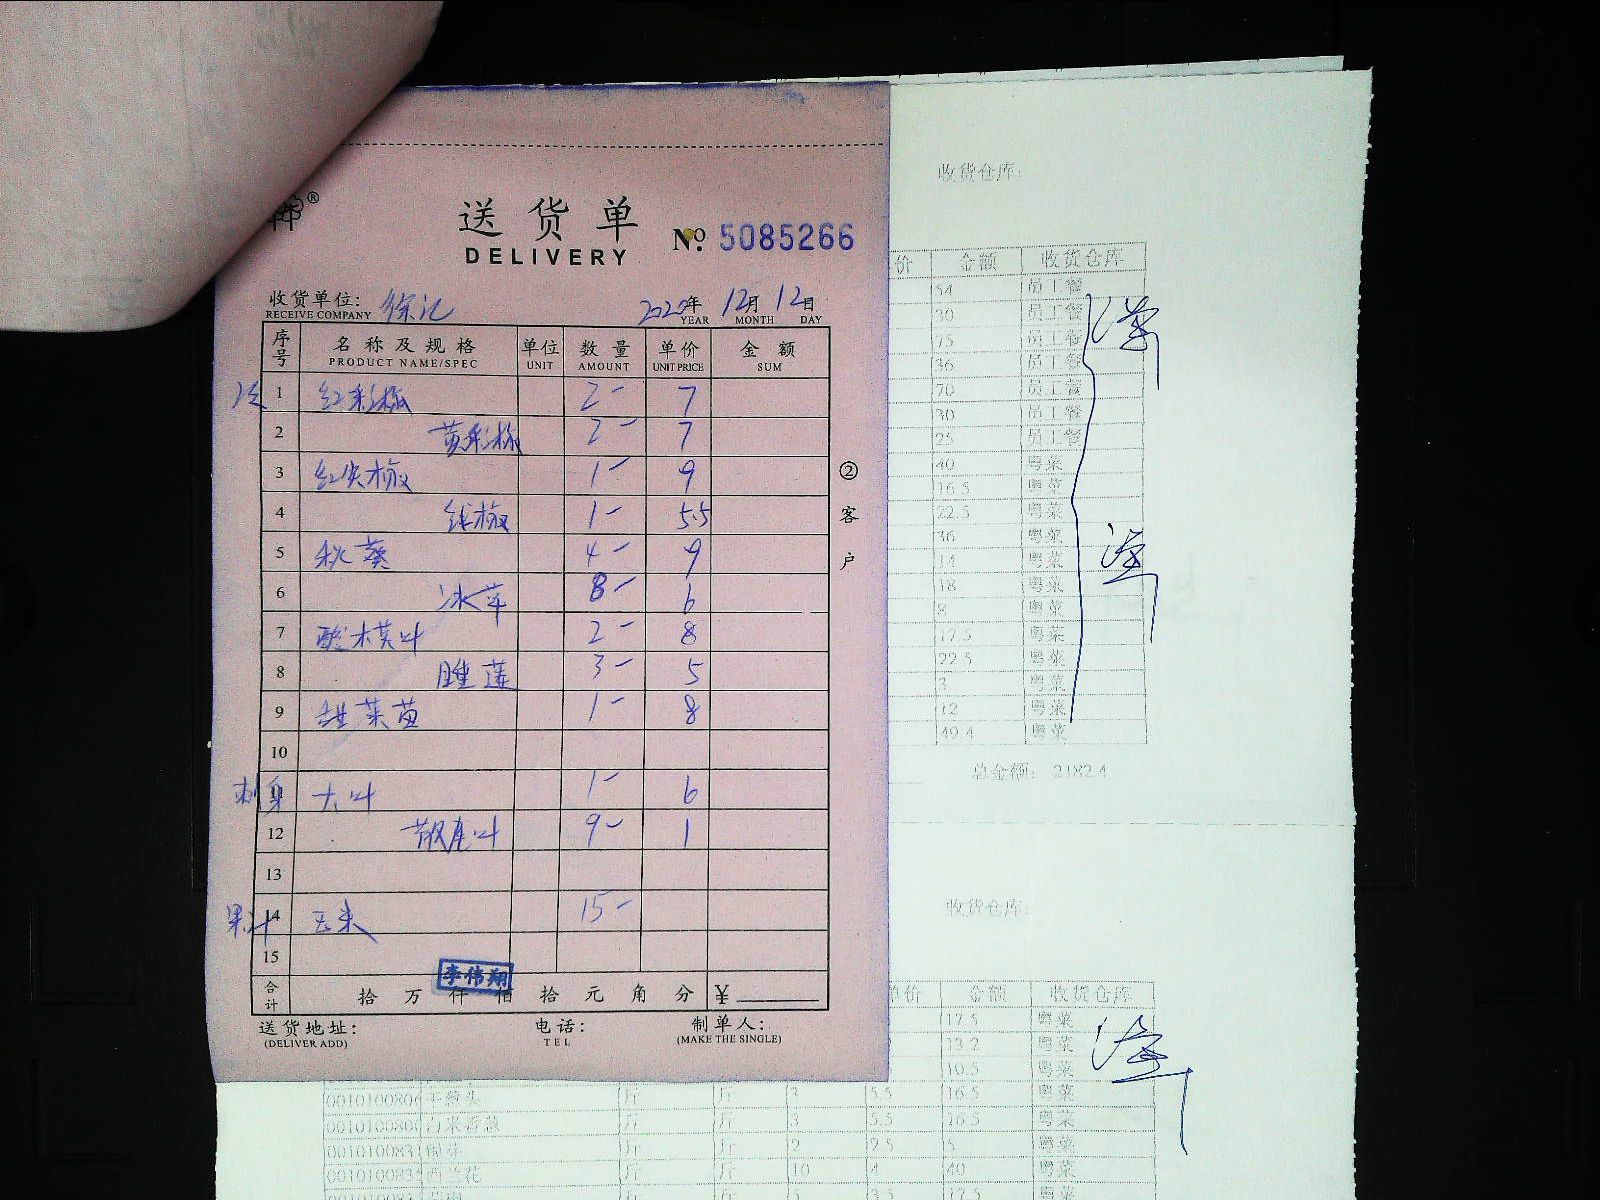 送货单
DELIVERY
№ 5085266
收货单位: 徐记 2020年 12月 12日
RECEIVE COMPANY YEAR MONTH DAY
序号 名称及规格 单位 数量 单价 金额
PRODUCT NAME/SPEC UNIT AMOUNT UNIT PRICE SUM
1 红彩椒 2- 7
2 黄彩椒 2- 7
3 红尖椒 1- 9
4 线椒 1- 5.5
5 秋葵 4- 9
6 冰草 8- 6
7 酸木莫叶 2- 8
8 睡莲 3- 5
9 甜菜苗 1- 8
10
刺身 大叶 1- 6
12 散尾叶 9- 1
13
果汁 14 玉米 15-
15
李伟翔
合计 拾 万 仟 佰 拾 元 角 分 ¥
送货地址: 电话: 制单人:
(DELIVER ADD) TEL (MAKE THE SINGLE)
②客户
收货仓库:
价 金额 收货仓库
54 员工餐
30 员工餐
75 员工餐
36 员工餐
70 员工餐
30 员工餐
25 员工餐
40 粤菜
16.5 粤菜
22.5 粤菜
36 粤菜
14 粤菜
18 粤菜
8 粤菜
17.5 粤菜
22.5 粤菜
3 粤菜
12 粤菜
49.4 粤菜
总金额: 2182.4
收货仓库:
单价 金额 收货仓库
17.5 粤菜
13.2 粤菜
10.5 粤菜
干葱头 斤 斤 3 5.5 16.5 粤菜
斤 斤 3 5.5 16.5 粤菜
银芽 斤 斤 2 2.5 5 粤菜
西兰花 斤 斤 10 4 40 粤菜
3.5 17.5 粤菜